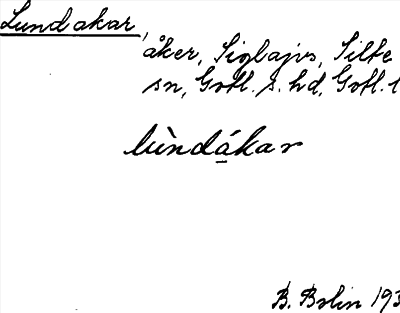 Lundakar,
åker, Siglajvs, Silte
sn, Gotl. s. hd, Gotl. l
lùndákar
B. Bolin 193